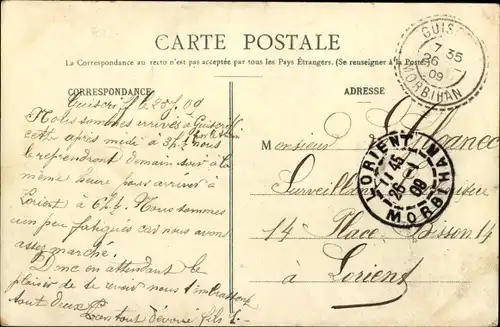 CARTE POSTALE
La Correspondance au recto n'est pas acceptée par tous les Pays Étrangers. (Se renseigner à la Poste)
CORRESPONDANCE
ADRESSE
Guiscriff le 25/1 09
Nous sommes arrivés à Guiscriff
cette après midi à 3h½ nous
le reprendrons demain soir à la
même heure pour arriver à
Lorient à 6h½. Nous sommes
un peu fatigués car nous avons
assez marché.
Donc en attendant le
plaisir de te revoir nous t'embrassons
tout deux
Ton tout dévoué fils
Monsieur
Surveillant
14 Place Bisson 14
à Lorient
GUIS
7 35
26
09
MORBIHAN
LORIENT
11 45
26 -1
09
MORBIHAN